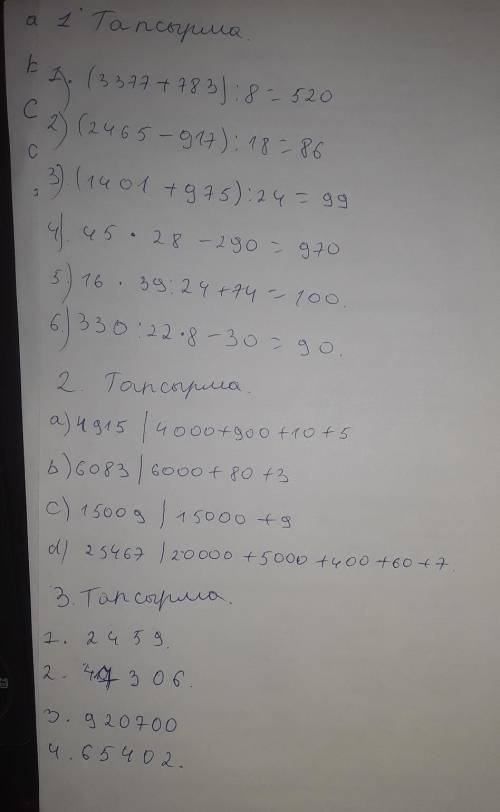 a 1 Тапсырма.
b
1). (3377+783):8=520
c
2) (2465-917):18=86
c
3) (1401+975):24=99
4). 45·28-290=970
5) 16·39:24+74=100.
6) 330:22·8-30=90.
2. Тапсырма.
a) 4915 | 4000+900+10+5
b) 6083 | 6000+80+3
c) 15009 | 15000+9
d) 25467 | 20000+5000+400+60+7.
3. Тапсырма.
1. 2459.
2. 306.
3. 920700
4. 65402.